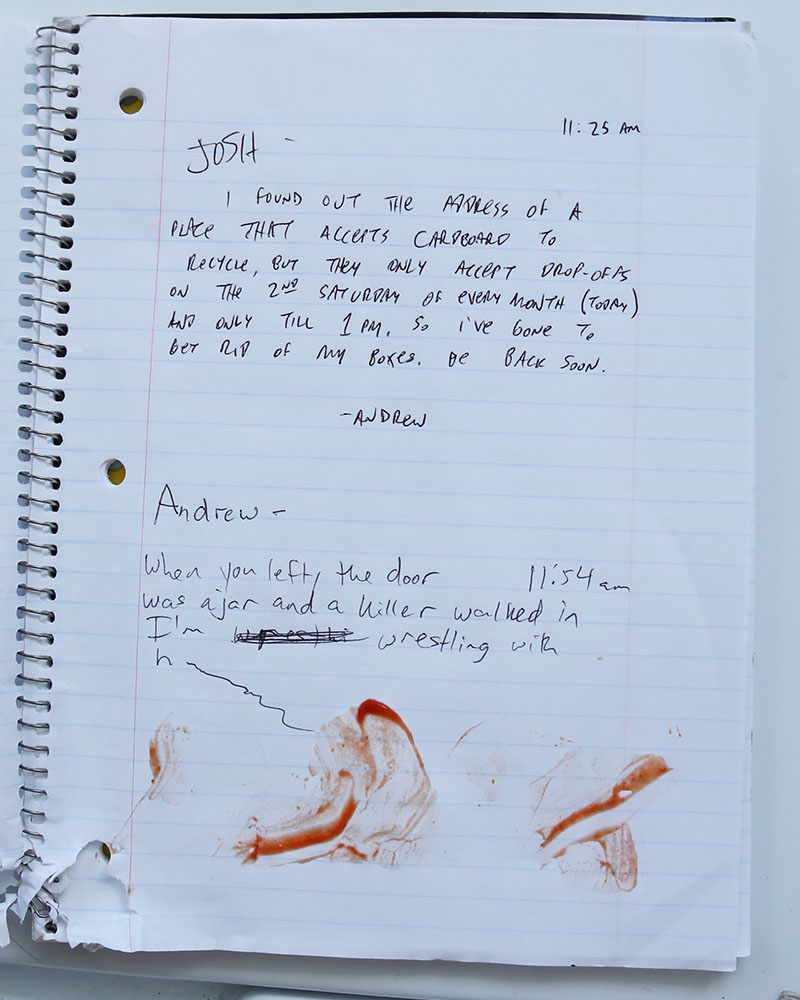 11:25 AM
JOSH -
I FOUND OUT THE ADDRESS OF A
PLACE THAT ACCEPTS CARDBOARD TO
RECYCLE, BUT THEY ONLY ACCEPT DROP-OFFS
ON THE 2ND SATURDAY OF EVERY MONTH (TODAY)
AND ONLY TILL 1 PM. SO I'VE GONE TO
GET RID OF MY BOXES. BE BACK SOON.
-ANDREW
Andrew -
11:54 am
When you left, the door
was ajar and a killer walked in
I'm wrestling with
h